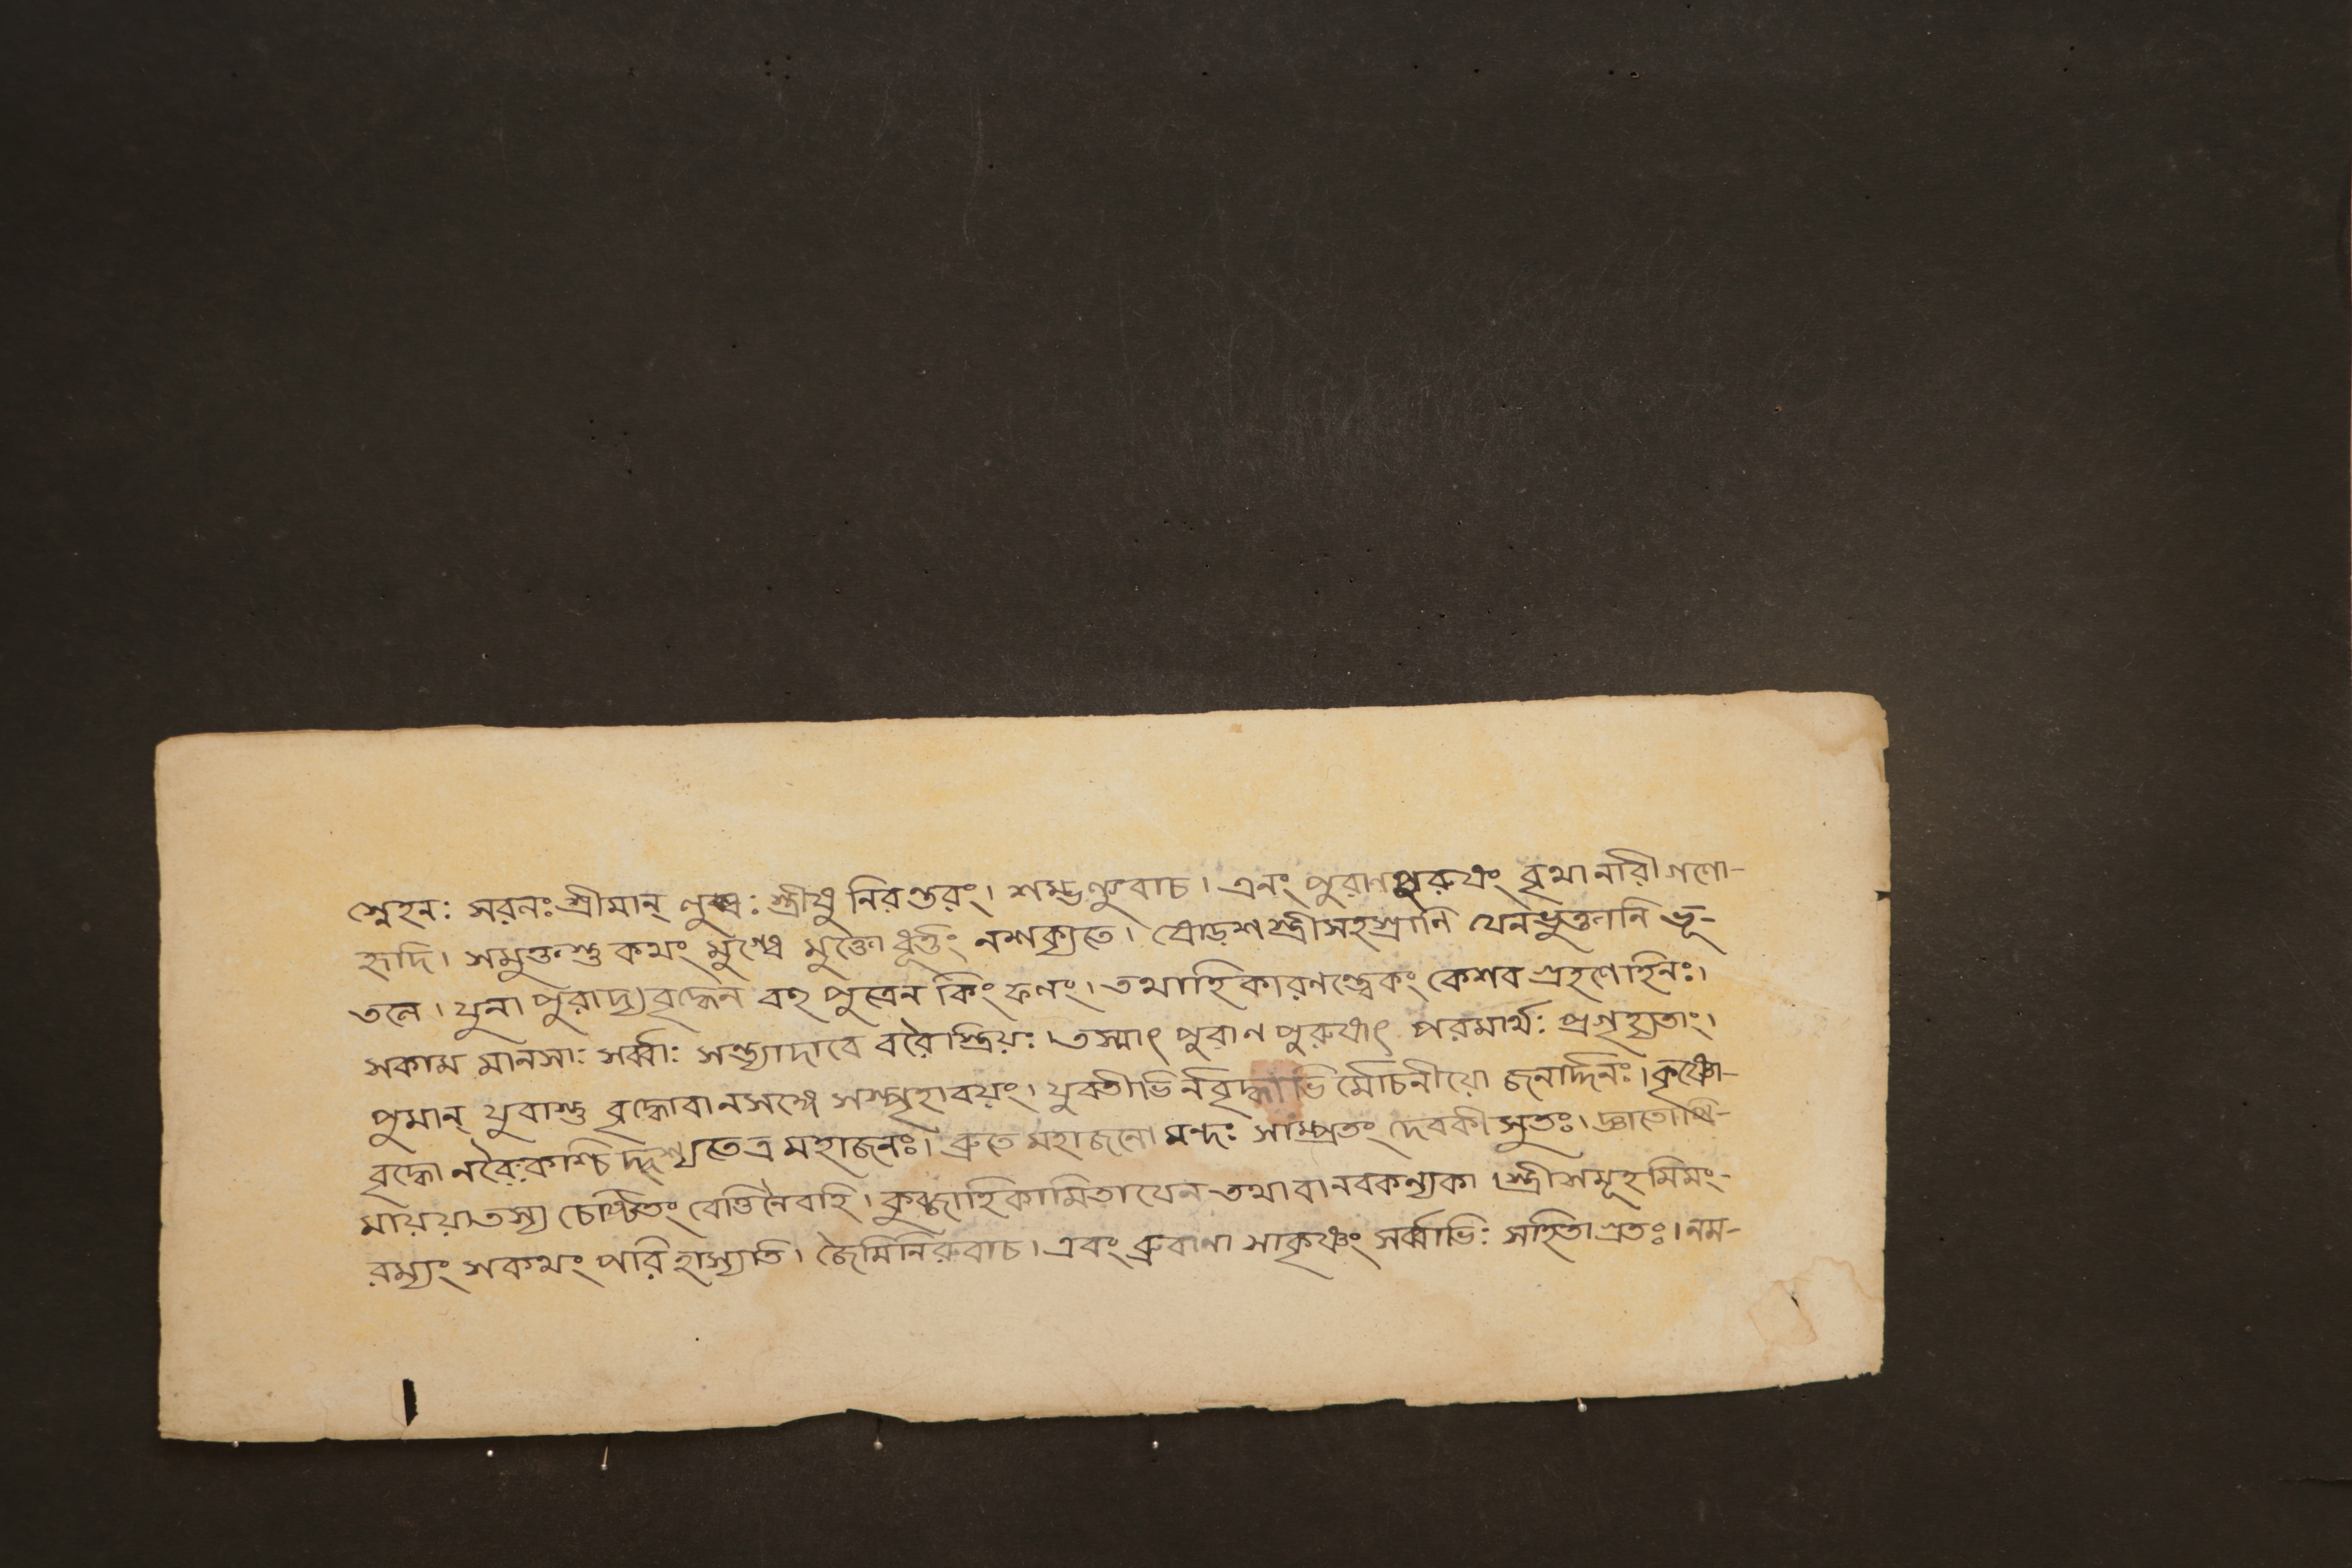 স্নেহন: সরনঃ শ্রীমান্ লুব্ধ: স্ত্রীষু নিরন্তরং। শম্ভল্যুবাচ। এনং পুরাণপুরুষং বৃথা নারীগণো-
হৃদি। সমুক্তস্তু কথং মুগ্ধে মুক্তো ধূর্ত্তং নশক্যতে। ষোড়শ স্ত্রীসহস্রানি যেনভুক্তানি ভূ-
তলে। যুনা পুরাদ্যবৃদ্ধেন বহু পুত্রেন কিং ফলং। তথাহি কারণন্ত্বেকং কেশব গ্রহণেহিনঃ।
সকাম মানসা: সর্ব্বা: সন্ত্যাদাবে বরৈস্ত্রিয়:। তস্মাৎ পুরাণ পুরুষাৎ পরমার্থ: প্রগৃহ্যতাং।
পুমান্ যুবাস্তু বৃদ্ধোবানসঙ্গে সস্পৃহাবয়ং। যুবতীভি র্নবৃদ্ধাভি র্মোচনীয়ো জনার্দ্দনঃ। কৃষ্ণো-
বৃদ্ধো নবৈকশ্চি দ্দৃশ্যতেত্র মহাজনঃ। ব্রুতে মহাজনো মন্দ: সাম্প্রতং দেবকীসুতঃ। জ্ঞাতোপি-
মায়য়াতস্য চেষ্টিতং বেত্তিনৈবহি। কুব্জাহিকামিতাযেন তথাবানবকন্যকা। স্ত্রীসমূহমিমং-
রম্যং সকথং পরি হাস্যতি। জৈমিনিরুবাচ। এবং ব্রুবাণা সাকৃষ্ণং সর্ব্বাভি: সহিতাগ্রতঃ। নম-